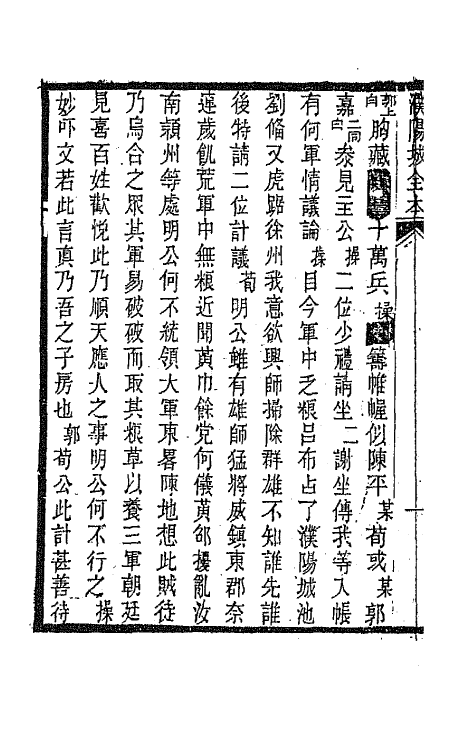 濮陽城全本
郭上白胸藏十萬兵操籌帷幄似陳平某荀或某郭
嘉二同白叅見主公操二位少禮請坐二謝坐傳我等入帳
有何軍情議論操目今軍中乏粮呂布占了濮陽城池
劉偹又虎踞徐州我意欲興師掃除群雄不知誰先誰
後特請二位計議荀明公雖有雄師猛將威鎮東郡奈
連歲飢荒軍中無粮近聞黃巾餘党何儀黃邵擾亂汝
南穎州等處明公何不統領大軍東畧陳地想此賊徒
乃烏合之眾其軍易破破而取其粮草以養三軍朝廷
見喜百姓歡悅此乃順天應人之事明公何不行之操
妙吓文若此言真乃吾之子房也郭荀公此計甚善待